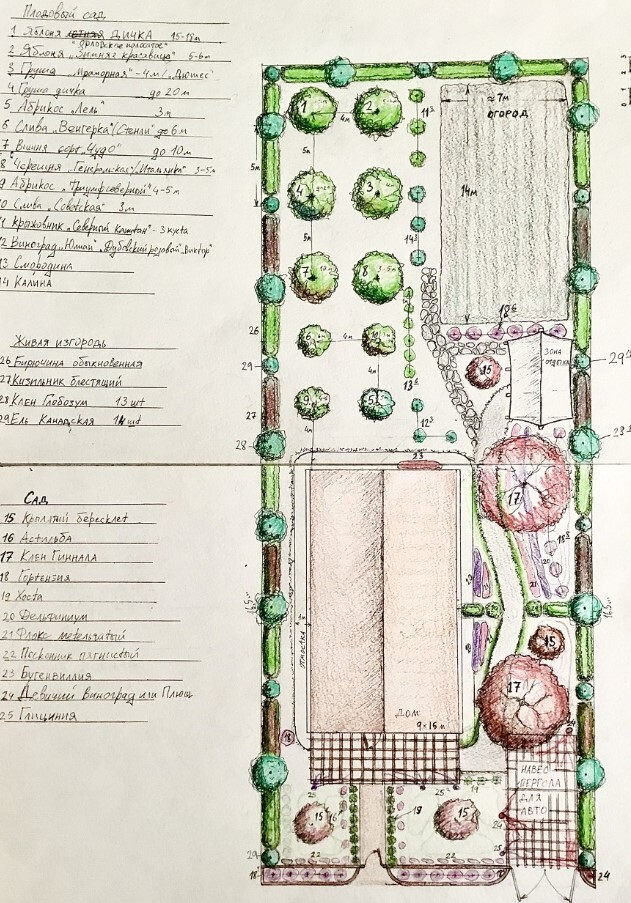 Плодовый сад
1 Яблоня дичка 15-18м
2 Яблоня "Орловское полосатое" "Зимняя красавица" 5-6м
3 Груша "Мраморная" - 4м / "Дюшес"
4 Груша дичка до 20м
5 Абрикос "Лель" 3м
6 Слива "Венгерка"/Стенли" до 6м
7 Вишня сорт "Чудо" до 10м
8 Черешня "Генеральская"/"Итальянка" 3-5м
9 Абрикос "Триумф северный" 4-5м
10 Слива "Советская" 3м
11 Крыжовник "Северный капитан" - 3 куста
12 Виноград "Юлиан" "Дубовский розовый" "Виктор"
13 Смородина
14 Калина
Живая изгородь
26 Бирючина обыкновенная
27 Кизильник блестящий
28 Клен Глобозум 13 шт
29 Ель Канадская 14 шт
Сад
15 Крылатый бересклет
16 Астильба
17 Клен Гиннала
18 Гортензия
19 Хоста
20 Дельфиниум
21 Флокс метельчатый
22 Посконник пятнистый
23 Бугенвиллия
24 Девичий Виноград или Плющ
25 Глициния
≈ 7м
ОГОРОД
14м
1
2
11³
4м
5м
5м
4
3
5м
14³
7
8
3-5м
18⁶
26
6
4м
9
15
ЗОНА ОТДЫХА
29
29
4м
13⁸
27
5
12³
4м
28
23
17
18³
16,5м
16,5м
ОТМОСТКА
15
17
ДОМ
9×15м
18
НАВЕС
ПЕРГОЛА
ДЛЯ
АВТО
25
25
19
15
16
19
15
24
25
29
22
22
18
24